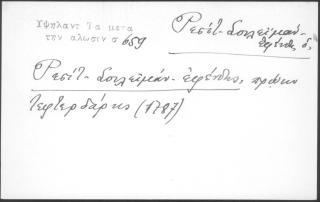 Υψηλαντ Τα μετα
την αλωσιν σ 659
Ρεσίτ-Σουλεϊμάν-
εφένδης ὁ,
Ρεσίτ-Σουλεϊμάν-εφένδης, πρώην
τεφτερδάρης (1787)